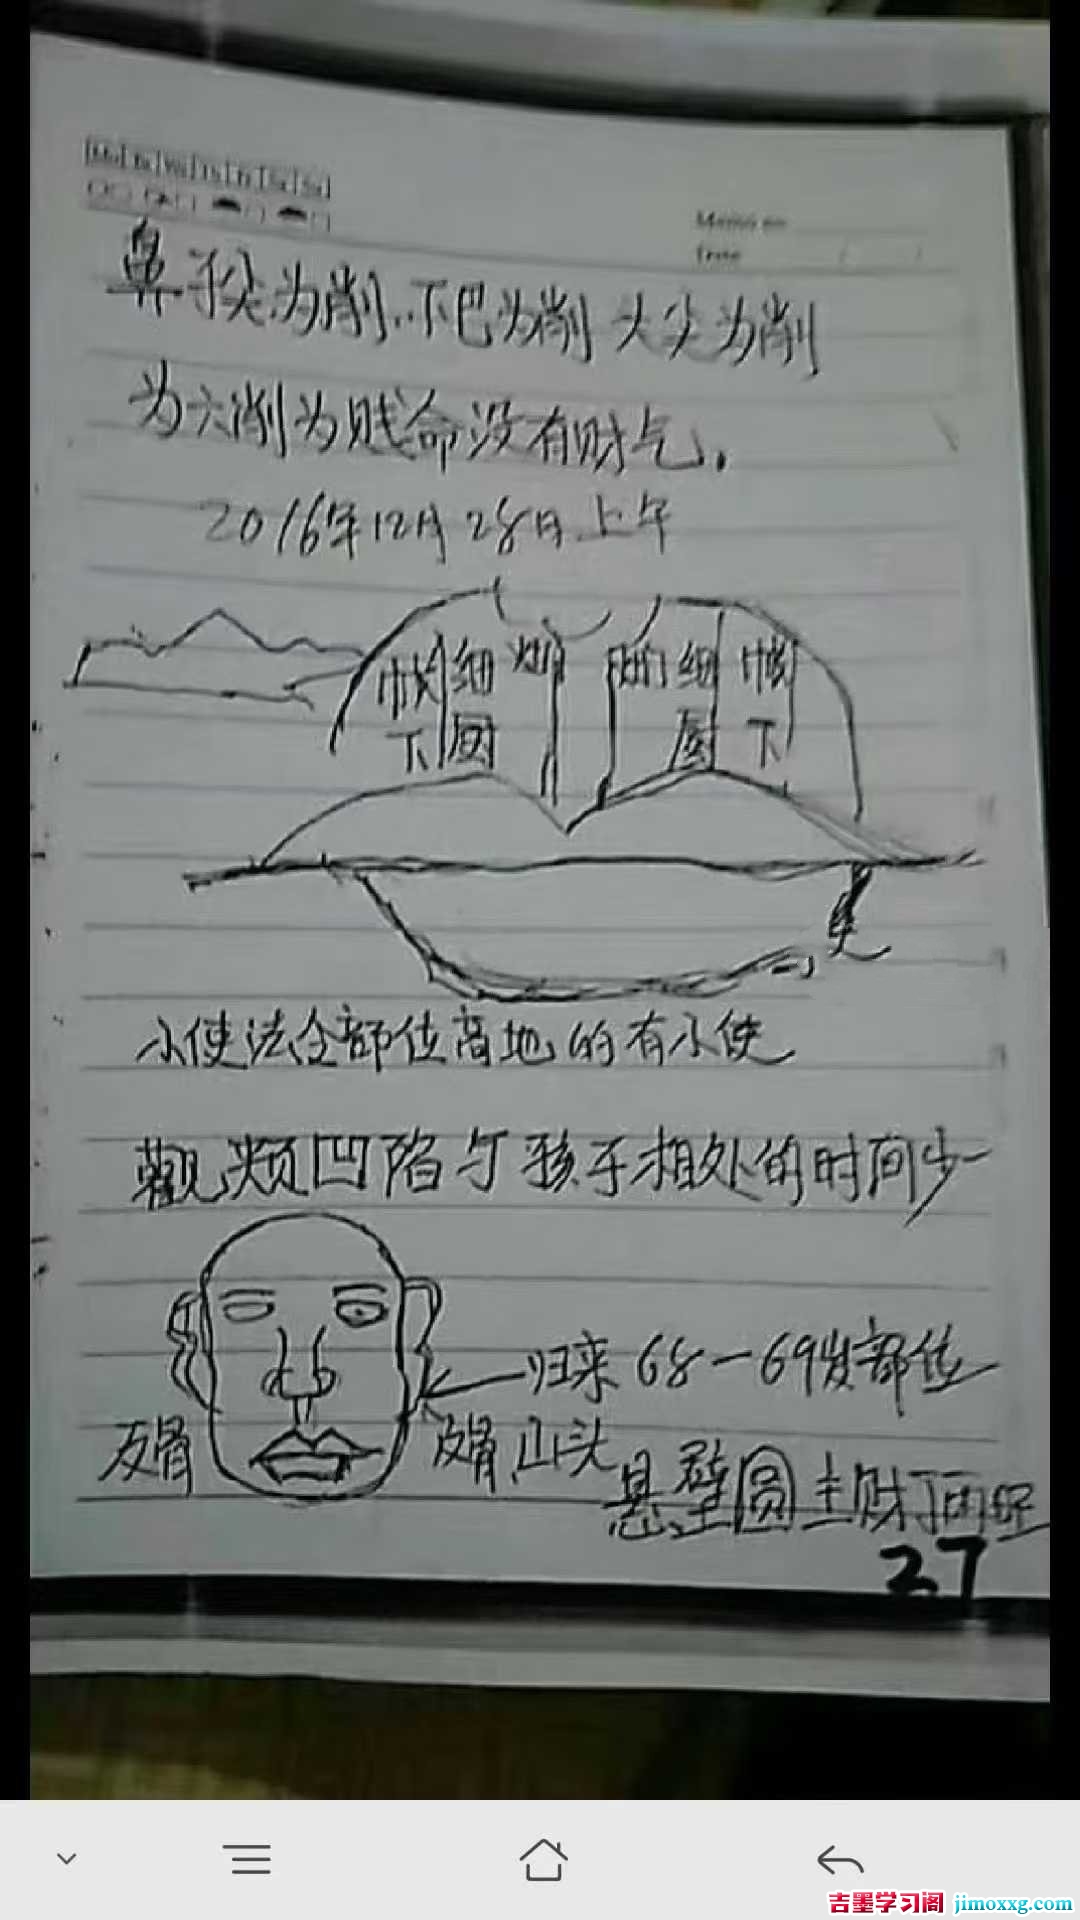 Memo no
Date
鼻子尖为削..下巴为削 头尖为削
为六削为贱命没有财气.
2016年12月28日上午
帐下 细厨 灶 细厨 帐下
小使法全部位高地的有小使
觀 颊凹陷与孩子相处的时间少
归来68-69岁部位
反骨 反骨 山头
悬壁圆主财丁两旺
27
吉墨学习阁 jimoxxg.com